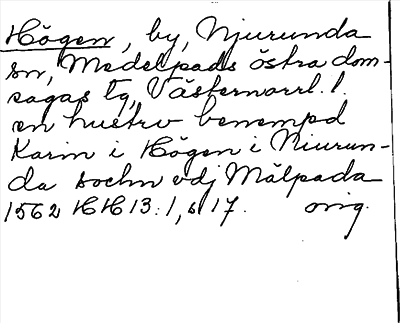 Högen, by, Njurunda
sn, Medelpads östra dom-
sagas tg, Västernorrl. l.
en hustrv benempd
Karin i Högen i Niurun-
da sochn vdj Mälpada
1562 HH 13:1, s 17. orig.